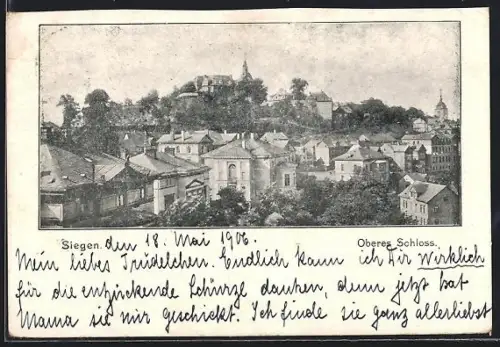 Siegen. den 18. Mai 1906. Oberes Schloss.
Mein liebes Trudelchen. Endlich kann ich Dir wirklich
für die entzückende Schürze danken, denn jetzt hat
Mama sie mir geschickt. Ich finde sie ganz allerliebst